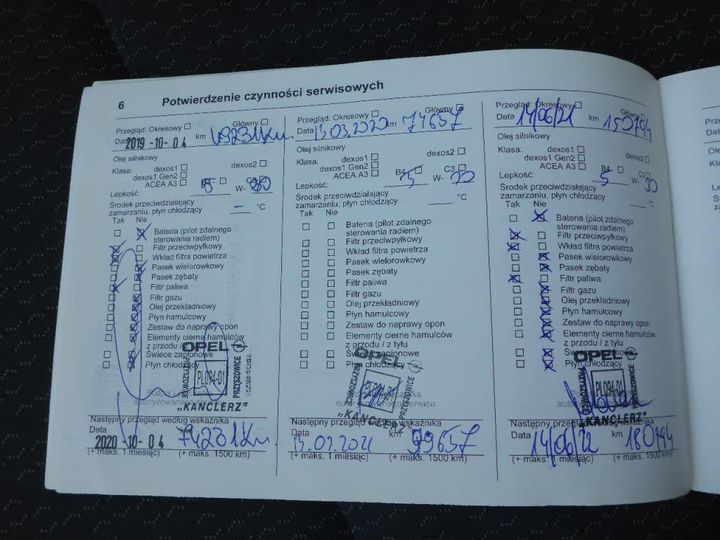 6 Potwierdzenie czynności serwisowych
Przegląd: Okresowy Główny
Data 2019 -10- 0 4 km
Olej silnikowy
Klasa: dexos1 dexos2
dexos1 Gen2
ACEA A3 B4 C3
Lepkość: 5 W- 30
Środek przeciwdziałający
zamarzaniu, płyn chłodzący - °C
Tak Nie
Bateria (pilot zdalnego
sterowania radiem)
Filtr przeciwpyłkowy
Wkład filtra powietrza
Pasek wielorowkowy
Pasek zębaty
Filtr paliwa
Filtr gazu
Olej przekładniowy
Płyn hamulcowy
Zestaw do naprawy opon
Elementy cierne hamulców
z przodu / z tyłu
Świece zapłonowe
Płyn chłodzący
OPEL
PL094-01
„KANCLERZ"
Następny przegląd według wskaźnika
Data
2020 -10- 0 4 74231 km
(+ maks. 1 miesiąc) (+ maks. 1500 km)
Przegląd: Okresowy Główny
Data 13.03.2020 km 74657
Olej silnikowy
Klasa: dexos1 dexos2
dexos1 Gen2
ACEA A3 B4 C3
Lepkość: 5 W- 30
Środek przeciwdziałający
zamarzaniu, płyn chłodzący °C
Tak Nie
Bateria (pilot zdalnego
sterowania radiem)
Filtr przeciwpyłkowy
Wkład filtra powietrza
Pasek wielorowkowy
Pasek zębaty
Filtr paliwa
Filtr gazu
Olej przekładniowy
Płyn hamulcowy
Zestaw do naprawy opon
Elementy cierne hamulców
z przodu / z tyłu
Świece zapłonowe
Płyn chłodzący
OPEL
„KANCLERZ"
Następny przegląd według wskaźnika
Data km 99657
(+ maks. 1 miesiąc) (+ maks. 1500 km)
Przegląd: Okresowy Główny
Data 14/06/21 km 150794
Olej silnikowy
Klasa: dexos1 dexos2
dexos1 Gen2
ACEA A3 B4 C3
Lepkość: 5 W- 30
Środek przeciwdziałający
zamarzaniu, płyn chłodzący °C
Tak Nie
Bateria (pilot zdalnego
sterowania radiem)
Filtr przeciwpyłkowy
Wkład filtra powietrza
Pasek wielorowkowy
Pasek zębaty
Filtr paliwa
Filtr gazu
Olej przekładniowy
Płyn hamulcowy
Zestaw do naprawy opon
Elementy cierne hamulców
z przodu / z tyłu
Świece zapłonowe
Płyn chłodzący
OPEL
PL094-01
„KANCLERZ"
Następny przegląd według wskaźnika
Data 14/06/22 km 180794
(+ maks. 1 miesiąc) (+ maks. 1500 km)